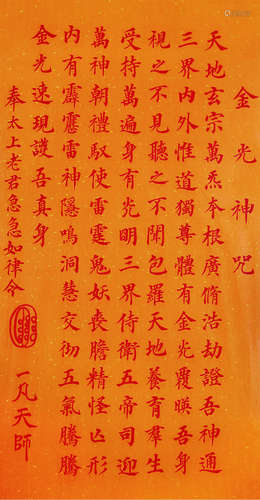 金光神咒
天地玄宗萬炁本根廣脩浩劫證吾神通
三界內外惟道獨尊體有金光覆暎吾身
視之不見聽之不聞包羅天地養育羣生
受持萬遍身有光明三界侍衛五帝司迎
萬神朝禮馭使雷霆鬼妖喪膽精怪亡形
內有霹靂雷神隱鳴洞慧交彻五氣騰騰
金光速現護吾真身
奉太上老君急急如律令
一凡天師